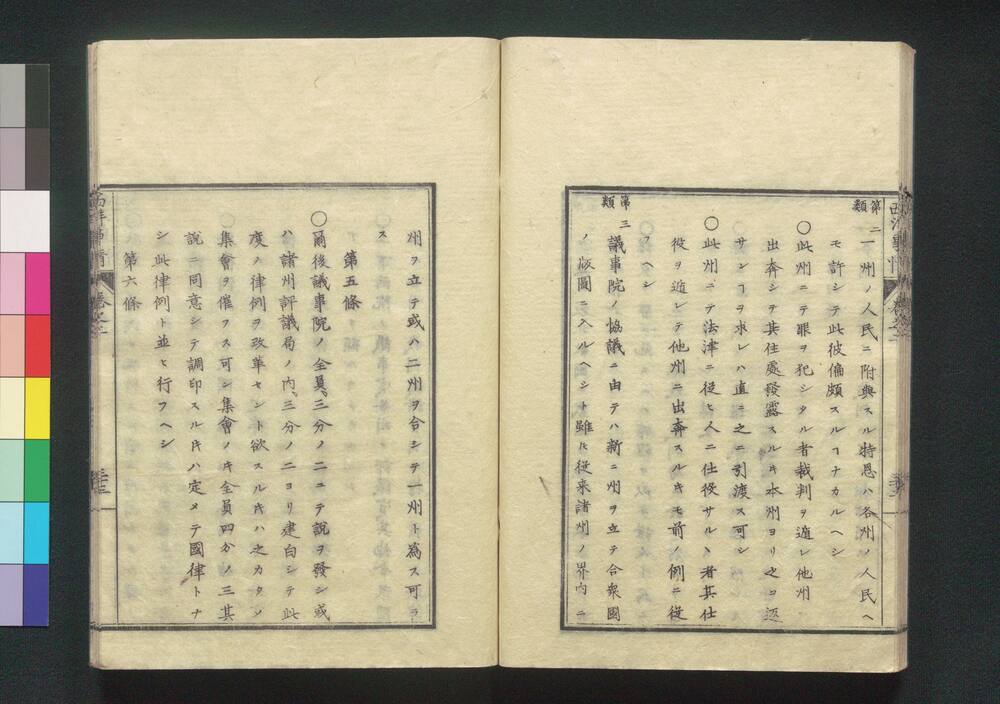 西洋事情 卷之二
第二類
一州ノ人民ニ附與スル特恩ハ各州ノ人民ヘ
モ許シテ此彼偏頗スルヿナカルヘシ
〇此州ニテ罪ヲ犯シタル者裁判ヲ遁レ他州ニ
出奔シテ其住處發露スルキ本州ヨリ之ヲ返
サンヿヲ求レハ直ニ之ニ引渡ス可シ
〇此州ニテ法律ニ從ヒ人ニ仕役サルヽ者其仕
役ヲ遁レテ他州ニ出奔スルキモ前ノ例ニ從
フヘシ
第三類
議事院ノ協議ニ由テハ新ニ州ヲ立テ合衆國
ノ版圖ニ入ルヘシト雖𪜈從来諸州ノ界内ニ
州ヲ立テ或ハ二州ヲ合シテ一州ト為ス可ラ
ス
第五條
〇爾後議事院ノ全員三分ノ二ニテ說ヲ發シ或
ハ諸州評議局ノ内三分ノ二ヨリ建白シテ此
度ノ律例ヲ改革セント欲スルキハ之カタメ
集會ヲ催フス可シ集會ノキ全員四分ノ三其
說ニ同意シテ調印スルキハ定メテ國律トナ
シ此律例ト並ヒ行フヘシ
第六條
西洋事情 卷之二